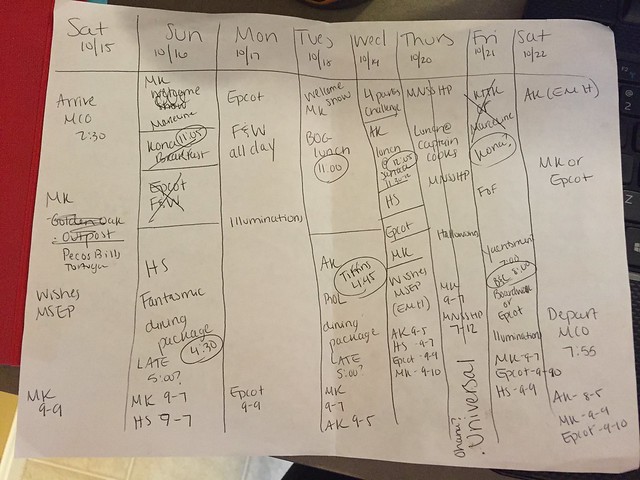 Sat
10/15
Arrive
MCO
2:30
MK
- Golden Oak
- Outpost
Pecos Bills
Tortuga
Wishes
MSEP
MK
9-9
Sun
10/16
MK
Welcome
Show
Kona 11:05
Breakfast
Epcot
F&W
HS
Fantasmic
dining
package
4:30
LATE
5:00?
MK 9-7
HS 9-7
Mon
10/17
Epcot
F&W
all day
Illuminations
Epcot
9-9
Tues
10/18
Welcome
show
MK
BOG
lunch
11:00
AK
Tiffins
4:45
ROL
dining
package
LATE
5:00?
MK
9-7
AK 9-5
Wed
10/19
4 parks
challenge
AK
lunch
@ 12:05
HS
Epcot
MK
Wishes
MSEP
(EMH)
AK 9-5
HS 9-7
Epcot 9-9
MK 9-10
Thurs
10/20
MNSSHP
Lunch @
captain
cooks
MNSSHP
Hallowishes
MK
9-7
MNSSHP
7-12
Fri
10/21
or
Kona?
FoF
Yachtsman
7:00
8:00
Boardwalk
or
Epcot
Illuminations
MK-9-7
Epcot-9-9
HS-9-9
Ohana?
Universal
Sat
10/22
AK (EMH)
MK or
Epcot
Depart
MCO
7:55
AK- 8-5
MK-9-9
Epcot-9-10